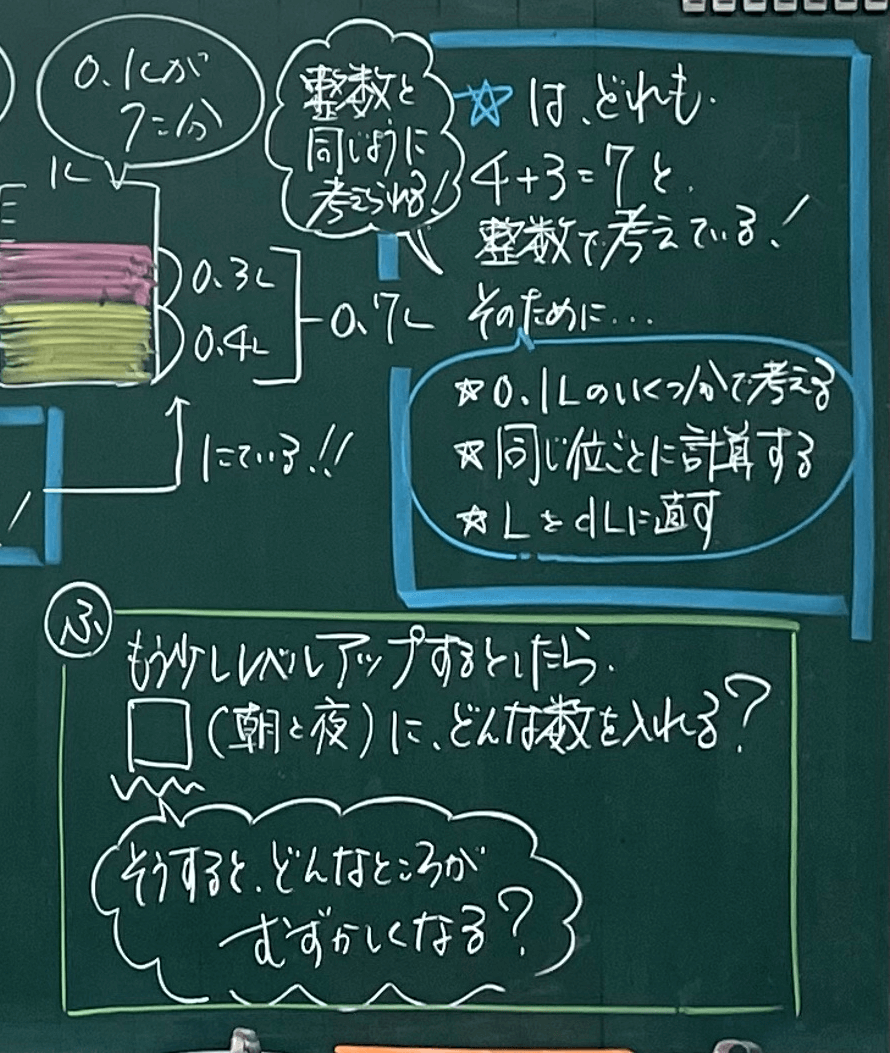 0.1Lが
7こ分
1L
0.3L
0.4L
0.7L
にている!!
整数と
同じように
考えられる!
☆は、どれも、
4+3=7と、
整数で考えている!
そのために…
☆0.1Lのいくつ分で考える
☆同じ位ごとに計算する
☆LをdLに直す
ふ
もう少しレベルアップするとしたら、
□(朝と夜)に、どんな数を入れる?
そうすると、どんなところが
むずかしくなる?